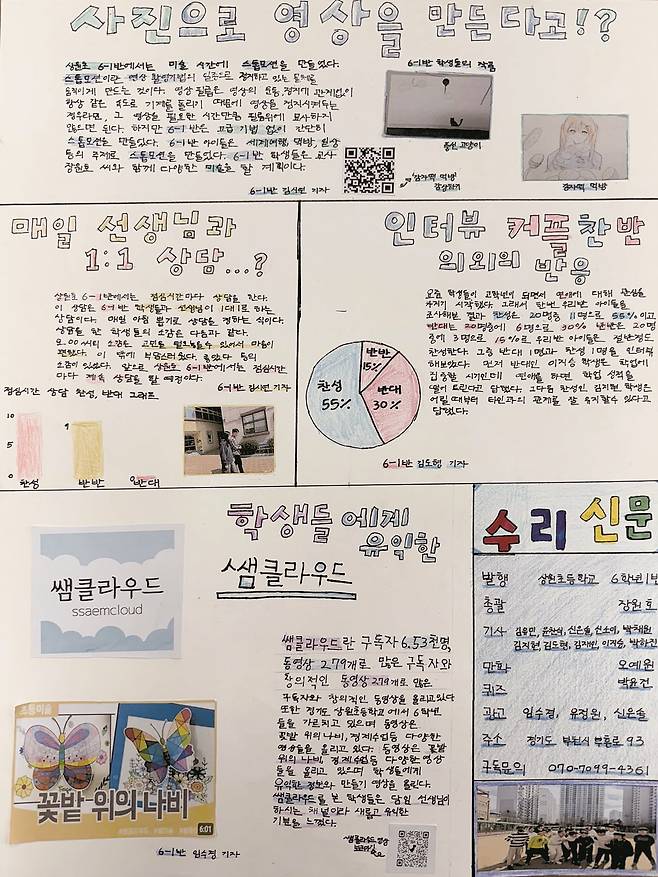 사진으로 영상을 만든다고!?
상원초 6-1반에서는 미술 시간에 스톱모션을 만들었다.
스톱모션이란 영상 촬영기법의 일종으로 정지하고 있는 물체를
움직이게 만드는 것이다. 영상 필름은 영상의 운동, 정지에 관계없이
항상 같은 속도로 기계를 돌리기 때문에 영상을 정지시켜두는
경우라면, 그 영상을 필요한 시간만큼 필름위에 묘사하지
않으면 된다. 하지만 6-1반은 고급 기법 없이 간단히
스톱모션을 만들었다. 6-1반 아이들은 세계여행, 먹방, 일상
등의 주제로 스톱모션을 만들었다. 6-1반 학생들은 교사
장원호 씨와 함께 다양한 미술로 할 계획이다.
6-1반 김시연 기자
6-1반 학생들의 작품
풍선 고양이
감자떡 먹방
감상하기
감자떡 먹방
매일 선생님과
1:1 상담...?
상원초 6-1반에서는 점심시간마다 상담을 한다.
이 상담은 6-1반 학생들과 선생님이 1대1로 하는
상담이다. 매일 아침 뽑기로 상담을 정하는 식이다.
상담을 한 학생들의 소감은 다음과 같다.
모.00씨의 소감은 고민을 털어놓을 수 있어서 마음이
편했다. 이 밖에 부담스러웠다, 좋았다 등의
소감이 있었다. 앞으로 상원초 6-1반에서는 점심시간
마다 계속 상담을 할 예정이다.
6-1반 김시연 기자
점심시간 상담 찬성, 반대 그래프
10
5
0
찬성
반반
반대
인터뷰 커플찬반
의외의 반응
요즘 학생들이 고학년이 되면서 연애에 대해 관심을
가지기 시작했다. 그래서 한번 우리반 아이들을
조사해본 결과 찬성은 20명중 11명으로 55%이고
반대는 20명중에 6명으로 30% 반반은 20명
중에 3명으로 15%로 우리반 아이들은 절반정도
찬성한다. 그중 반대 1명과 찬성 1명을 인터뷰
해보았다. 먼저 반대인 이지승 학생은 학업에
집중할 시기인데 연애를 하면 학업 성적을
떨어트린다고 답했다. 그다음 찬성인 김지현 학생은
어릴때부터 타인과의 관계를 잘 유지할수있다고
답했다.
반반
15%
찬성
55%
반대
30%
6-1반 김도형 기자
학생들에게
유익한
쌤클라우드
쌤클라우드
ssaemcloud
쌤클라우드란 구독자 6.53천명,
동영상 279개로 많은 구독자와
창의적인 동영상 279개로 많은
구독자와 창의적인 동영상을 올리고있다
또한 경기도 상원초등학교에서 6학년
들을 가르치고 있으며 동영상은
꽃밭 위의 나비, 경제수업등 다양한
영상들을 올리고 있다. 동영상은 꽃밭
위의 나비, 경제수업등 다양한 영상
들을 올리고 있으며 학생들에게
유익한 정보와 만들기 영상을 올린다.
쌤클라우드를 본 학생들은 담임 선생님이
하시는 채널이라 새롭고 유익한
기분을 느꼈다.
쌤클라우드 영상
꽃밭 위의 나비
6:01
6-1반 임수경 기자
수리 신문
발행 상원초등학교 6학년1반
총괄 장원호
기사
만화 오예원
퀴즈 박윤건
광고 임수경, 유정원, 신은솔
주소 경기도 부천시 부흥로 93
구독문의 070-7099-4361